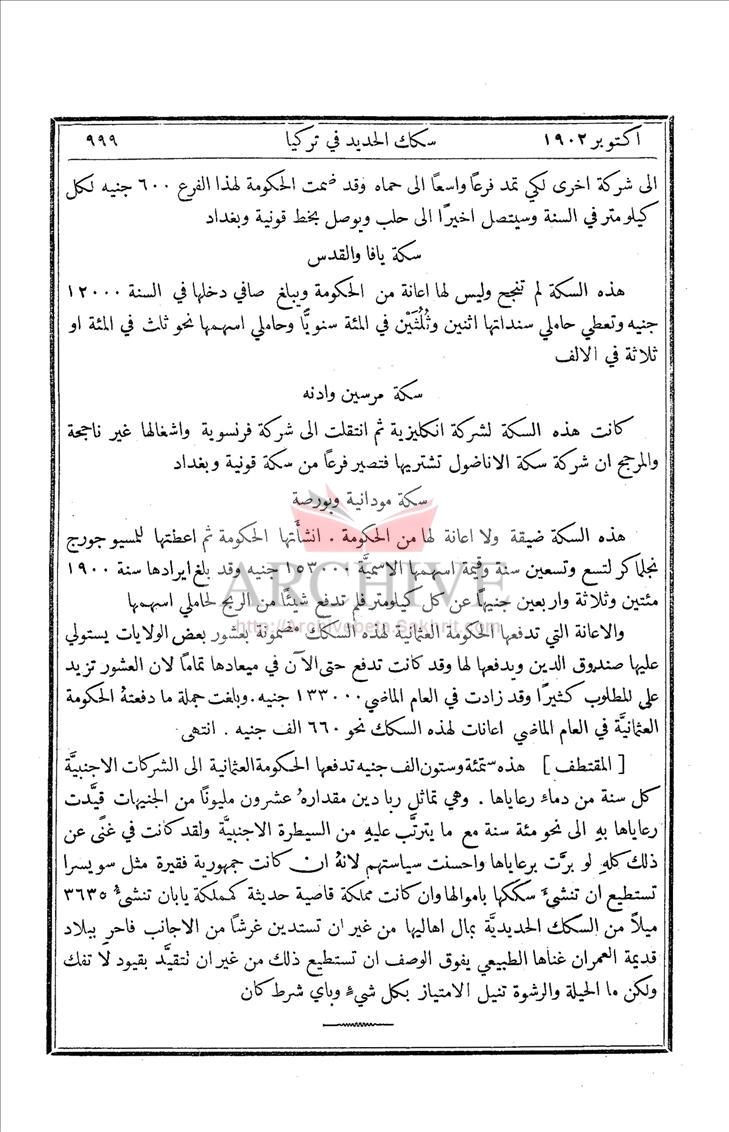 اكتوبر ١٩٠٢ سكك الحديد في تركيا ٩٩٩
الى شركة اخرى لكي تمد فرعًا واسعًا الى حماه وقد ضمنت الحكومة لهذا الفرع ٦٠٠ جنيه لكل
كيلومتر في السنة وسيتصل اخيرًا الى حلب ويوصل بخط قونية وبغداد
سكة يافا والقدس
هذه السكة لم تنجح وليس لها اعانة من الحكومة ويبلغ صافي دخلها في السنة ١٢٠٠٠
جنيه وتعطي حاملي سنداتها اثنين وثُلُثَيْن في المئة سنويًّا وحاملي اسهمها نحو ثلث في المئة او
ثلاثة في الالف
سكة مرسين وادنه
كانت هذه السكة لشركة انكليزية ثم انتقلت الى شركة فرنسوية واشغالها غير ناجحة
والمرجح ان شركة سكة الاناضول تشتريها فتصير فرعًا من سكة قونية وبغداد
سكة مودانية وبورصة
هذه السكة ضيقة ولا اعانة لها من الحكومة . انشأَتها الحكومة ثم اعطتها للمسيو جورج
نجلماكر لتسع وتسعين سنة وقيمة اسهمها الاسميَّة ١٥٣٠٠٠ جنيه وقد بلغ ايرادها سنة ١٩٠٠
مئتين وثلاثة واربعين جنيهًا عن كل كيلومتر فلم تدفع شيئًا من الربح لحاملي اسهمها
والاعانة التي تدفعها الحكومة العثمانية لهذه السكك مضمونة بعشور بعض الولايات يستولي
عليها صندوق الدين ويدفعها لها وقد كانت تدفع حتى الآن في ميعادها تمامًا لان العشور تزيد
على المطلوب كثيرًا وقد زادت في العام الماضي ١٣٣٠٠٠ جنيه. وبلغت جملة ما دفعتهُ الحكومة
العثمانيَّة في العام الماضي اعانات لهذه السكك نحو ٦٦٠ الف جنيه . انتهى
[ المقتطف ] هذه ستمئة وستون الف جنيه تدفعها الحكومة العثمانية الى الشركات الاجنبيَّة
كل سنة من دماء رعاياها . وهي تماثل ربا دين مقداره عشرون مليونًا من الجنيهات قيَّدت
رعاياها بهِ الى نحو مئة سنة مع ما يترتَّب عليهِ من السيطرة الاجنبيَّة ولقد كانت في غنًى عن
ذلك كلهِ لو برَّت برعاياها واحسنت سياستهم لانهُ ان كانت جمهورية فقيرة مثل سويسرا
تستطيع ان تنشئَ سككها باموالها وان كانت مملكة قاصية حديثة كمملكة يابان تنشئُ ٣٦٣٥
ميلاً من السكك الحديديَّة بمال اهاليها من غير ان تستدين غرشًا من الاجانب فاحرِ ببلاد
قديمة العمران غناها الطبيعي يفوق الوصف ان تستطيع ذلك من غير ان تتقيَّد بقيود لا تفك
ولكن ما الحيلة والرشوة تنيل الامتياز بكل شيءٍ وباي شرط كان
ARCHIVE
http://Archivebeta.Sakhrit.com